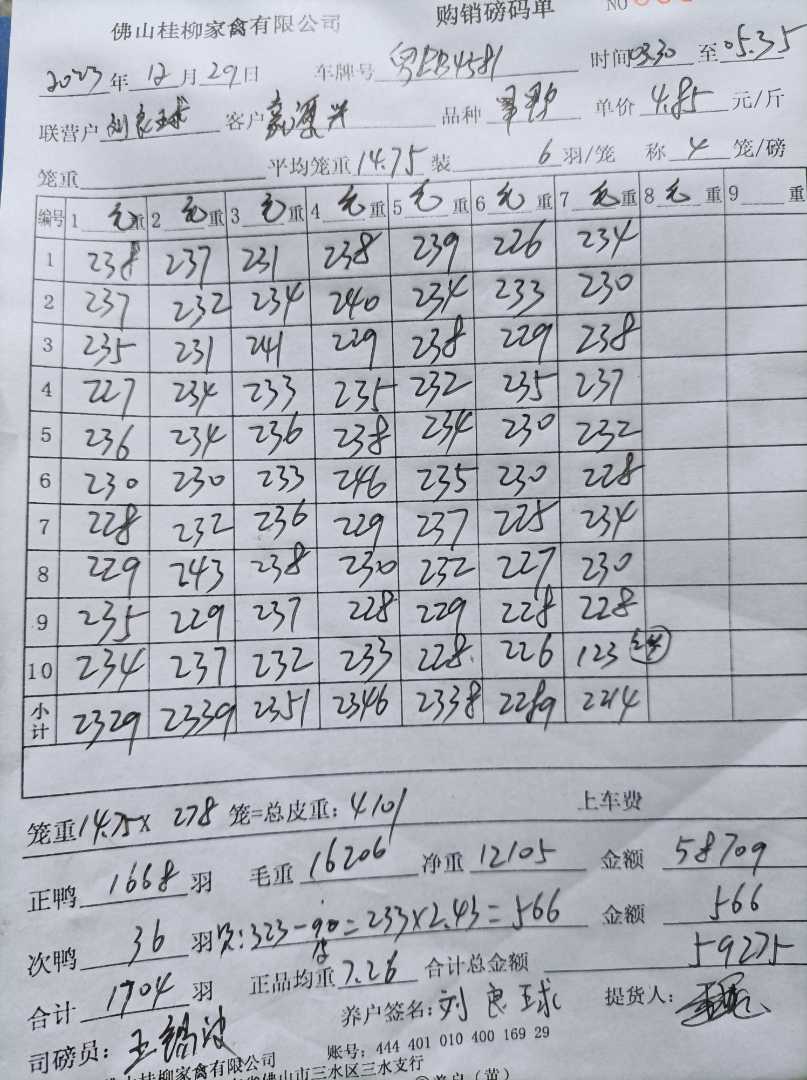 佛山桂柳家禽有限公司 购销磅码单 NO
2023年12月29日 车牌号 粤EB4581 时间03.30至05.35
联营户 刘良球 客户 品种 单价 4.85 元/斤
笼重 平均笼重14.75 装 6 羽/笼 称 4 笼/磅
编号 1 毛重 2 毛重 3 毛重 4 毛重 5 毛重 6 毛重 7 毛重 8 毛重 9 重
1 238 237 231 238 239 226 234
2 237 232 234 240 234 233 230
3 235 231 241 229 238 229 238
4 227 234 233 235 232 235 237
5 236 234 236 238 234 230 232
6 230 230 233 246 235 230 228
7 228 232 236 229 237 225 234
8 229 243 238 230 232 227 230
9 235 229 237 228 229 228 228
10 234 237 232 233 228 226 123
小计 2329 2339 2351 2346 2338 2289 2214
笼重14.75× 278 笼=总皮重: 4101 上车费
正鸭 1668 羽 毛重 16206 净重 12105 金额 58709
次鸭 36 羽 323-90=233×2.43=566 金额 566
合计 1704 羽 正品均重 7.26 合计总金额 59275
司磅员: 养户签名: 刘良球 提货人:
佛山桂柳家禽有限公司 账号: 444 401 010 400 169 29
佛山市三水区三水支行